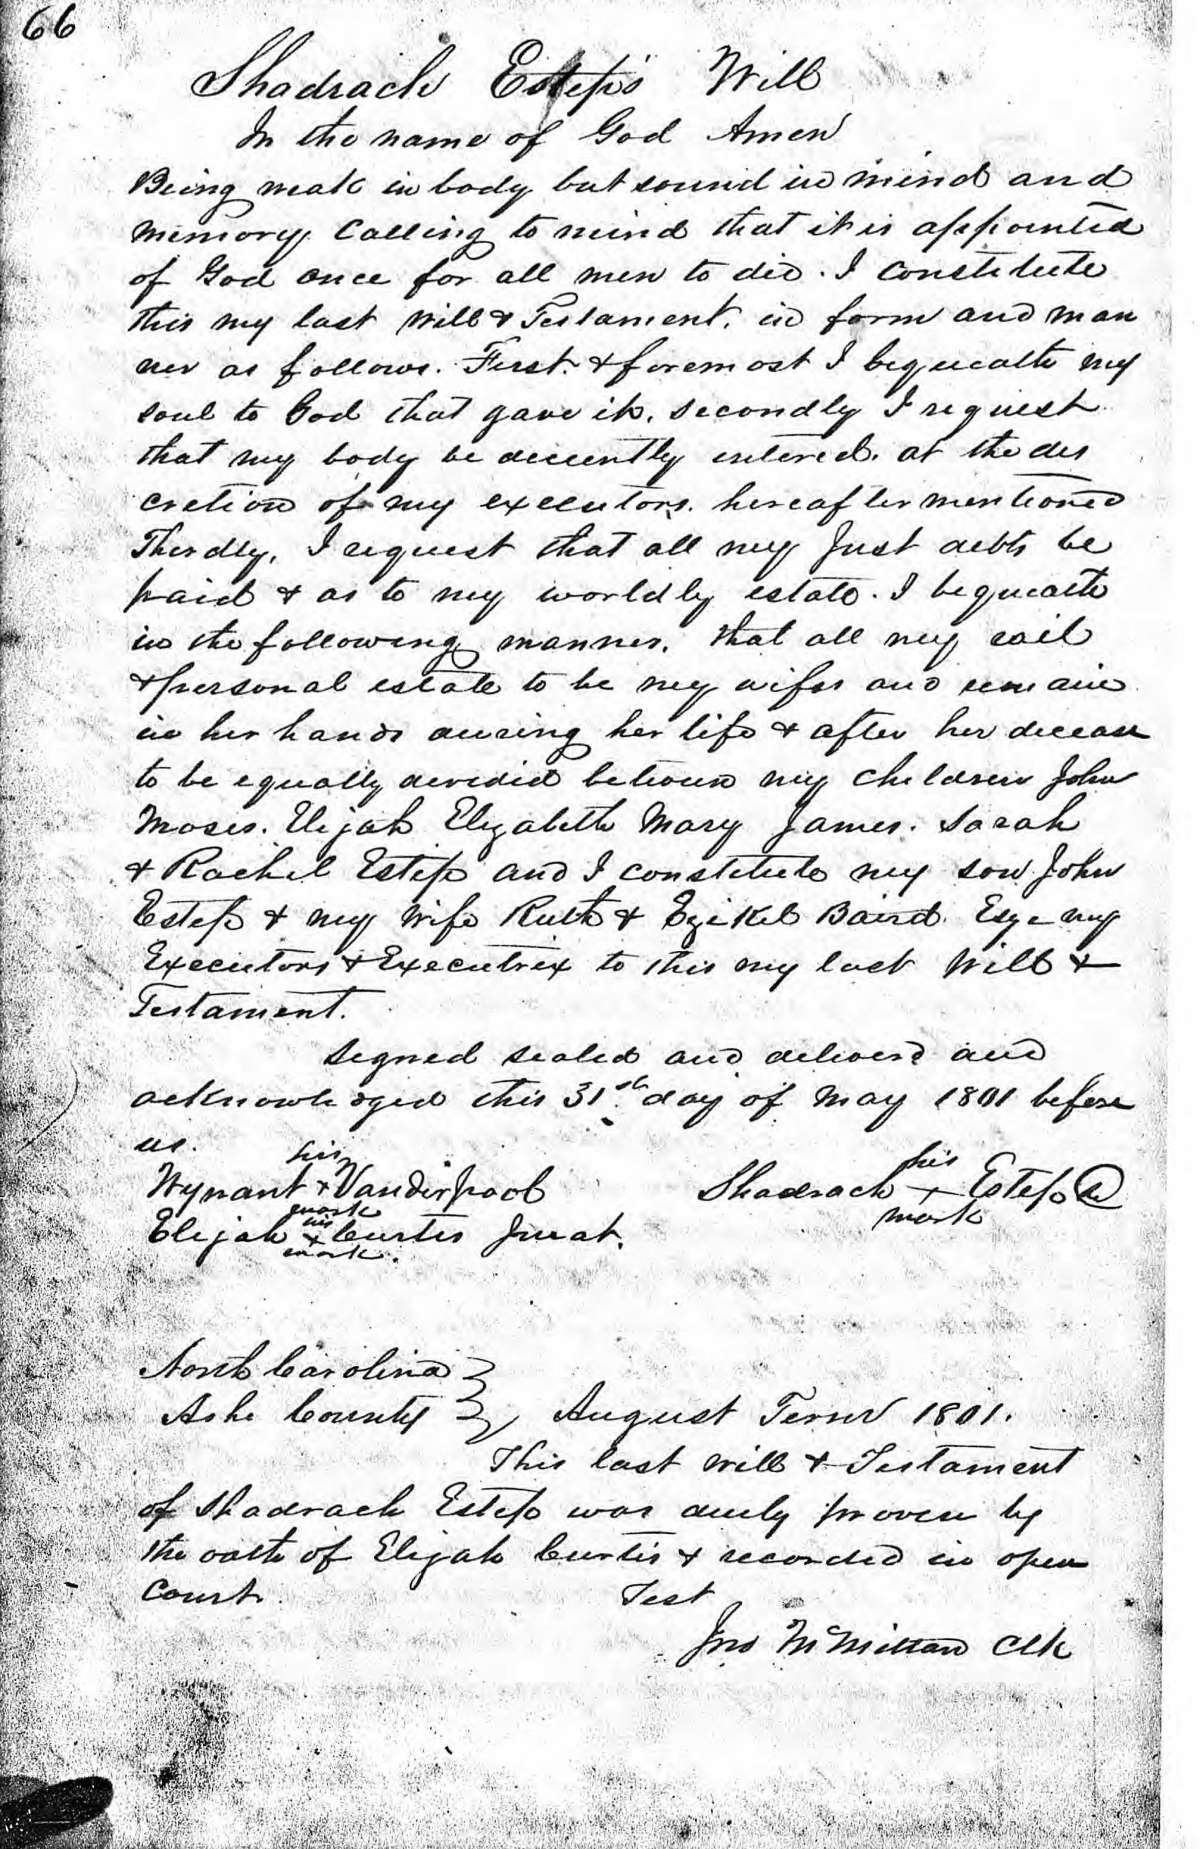 66
Shadrach Estep's Will
In the name of God Amen
Being weak in body but sound in mind and
memory. Calling to mind that it is appointed
of God once for all men to die. I constitute
this my last Will & Testament. in form and man
ner as follows. First. & foremost I bequeath my
soul to God that gave it. secondly I request
that my body be decently entered. at the dis
cretion of my executors. hereafter mentioned
Thirdly, I request that all my Just debts be
paid & as to my worldly estate. I bequeath
in the following manner. that all my rail
& personal estate to be my wifes and remain
in her hands during her life & after her decease
to be equally devided between my children John
Moses. Elijah Elizabeth Mary James. Sarah
& Rachel Estep and I constitute my son John
Estep & my Wife Ruth & Ezikel Baird Esqr my
Executors & Executrix to this my last Will &
Testament.
Signed sealed and deliverd and
acknowledged this 31st day of May 1801 before
us.
his his
Wynant + Vanderpool Shadrach + Estep
mark mark
his
Elijah + Curtis Jurat.
mark.
North Carolina
Ashe County August Term 1801.
This last will & Testament
of Shadrach Estep was duly proven by
the oath of Elijah Curtis & recorded in open
Court. Test
Jno McMillan Clk